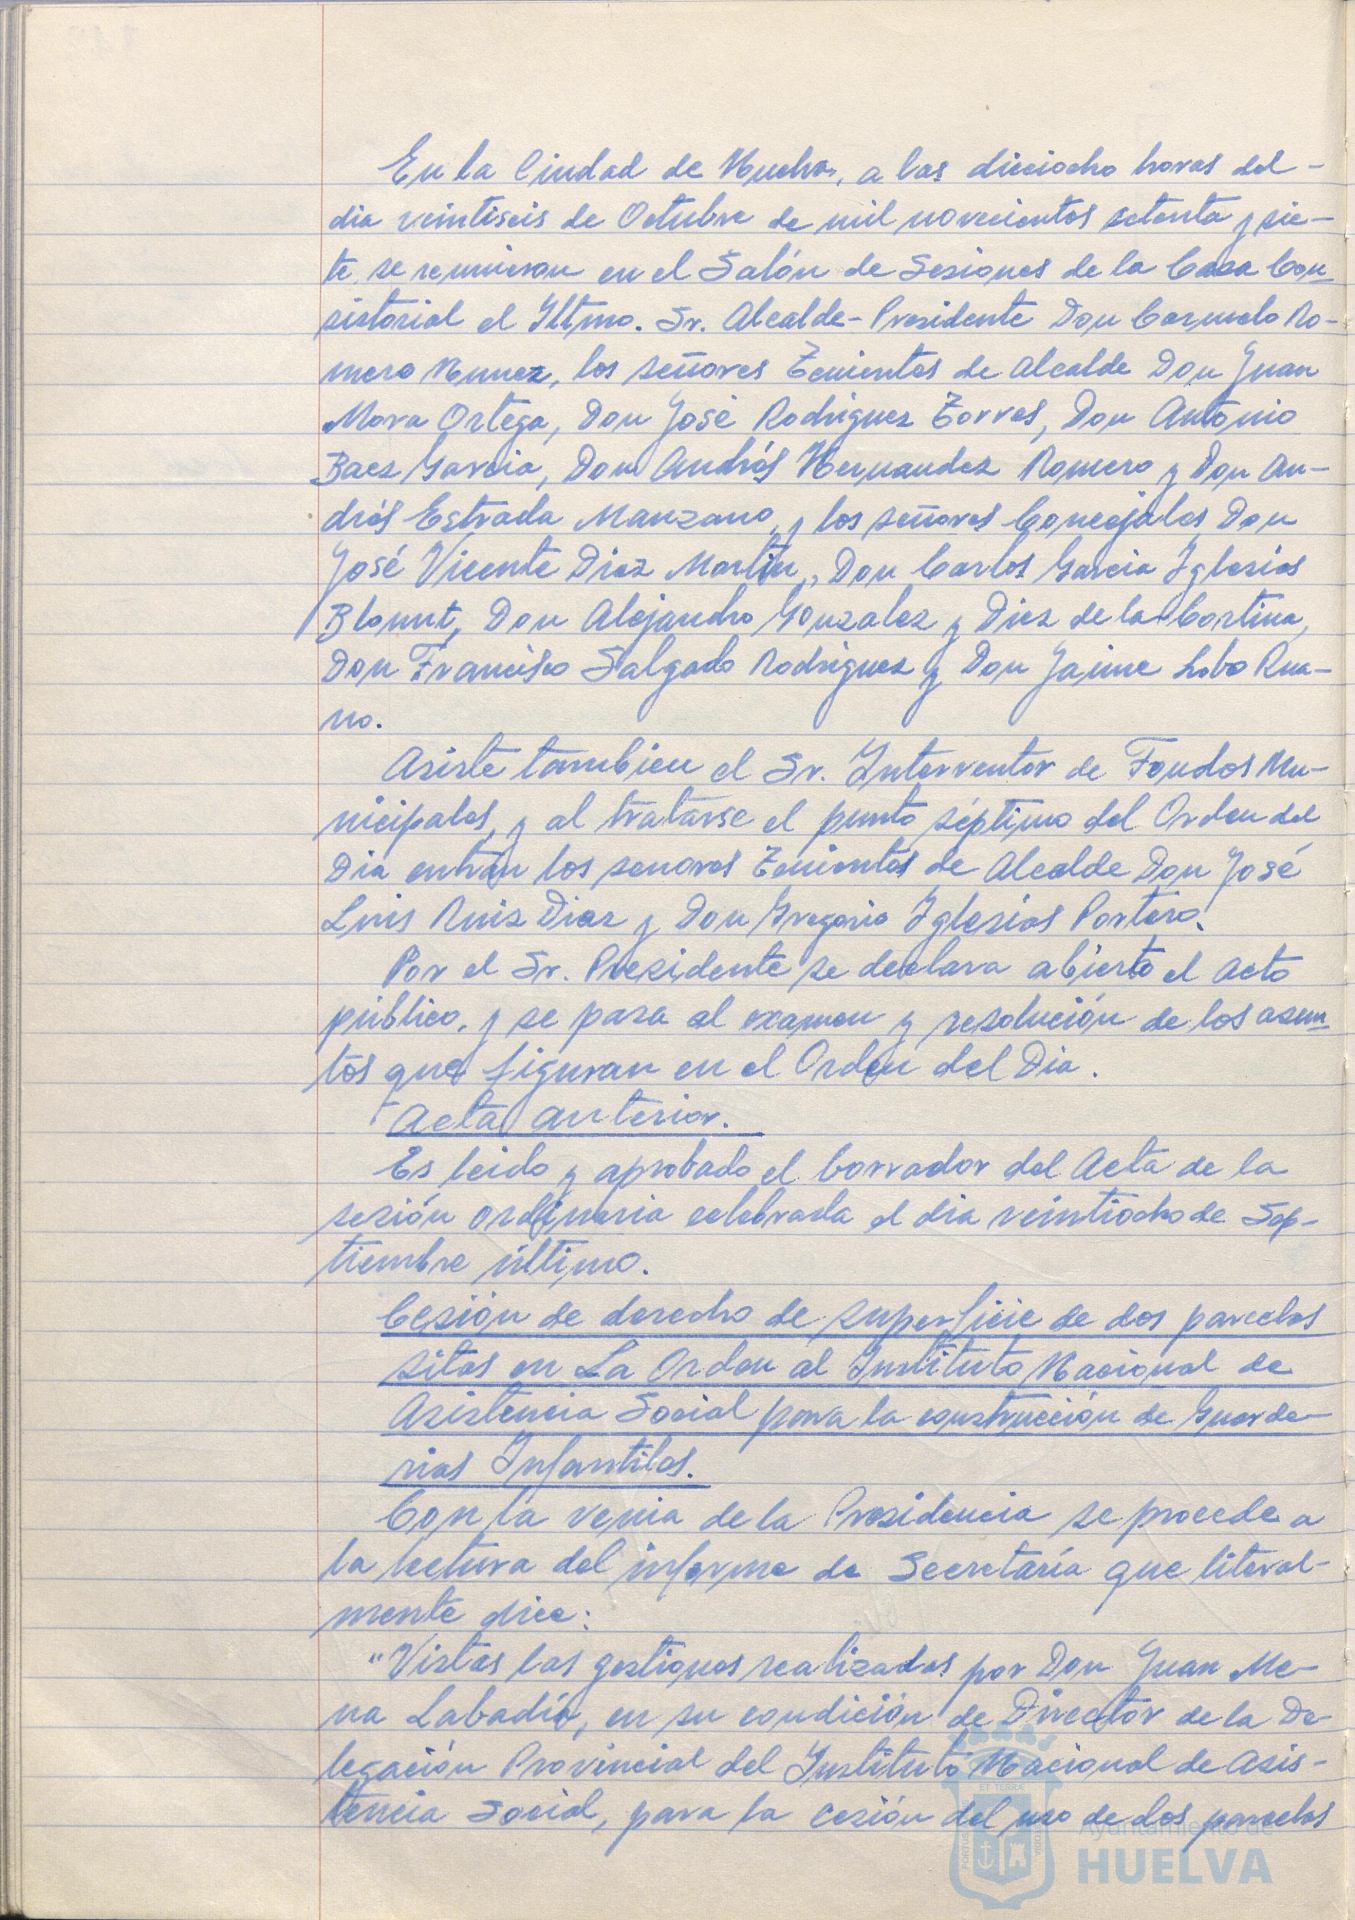 En la Ciudad de Huelva, a las dieciocho horas del
dia veintiseis de Octubre de mil novecientos setenta y sie-
te, se reunieron en el Salón de Sesiones de la Casa Con-
sistorial el Iltmo. Sr. Alcalde-Presidente Don Carmelo Ro-
mero Nuñez, los señores Tenientes de Alcalde Don Juan
Mora Ortega, Don José Rodriguez Torres, Don Antonio
Baez Garcia, Don Andrés Hernandez Romero y Don An-
drés Estrada Manzano, y los señores Concejales Don
José Vicente Diaz Martin, Don Carlos Garcia Iglesias
Blount, Don Alejandro Gonzalez y Diez de la Cortina,
Don Francisco Salgado Rodriguez y Don Jaime Lobo Rua-
no.
Asiste tambien el Sr. Interventor de Fondos Mu-
nicipales, y al tratarse el punto séptimo del Orden del
Dia entran los señores Tenientes de Alcalde Don José
Luis Ruiz Diaz y Don Gregorio Iglesias Portero.
Por el Sr. Presidente se declara abierto el acto
público, y se pasa al examen y resolución de los asun-
tos que figuran en el Orden del Dia.
Acta anterior.
Es leido y aprobado el borrador del Acta de la
sesión ordinaria celebrada el dia veintiocho de Sep-
tiembre último.
Cesión de derecho de superficie de dos parcelas
sitas en La Orden al Instituto Nacional de
Asistencia Social para la construcción de Guarde-
rias Infantiles.
Con la venia de la Presidencia se procede a
la lectura del informe de Secretaría que literal-
mente dice:
"Vistas las gestiones realizadas por Don Juan Me-
na Labadía, en su condición de Director de la De-
legación Provincial del Instituto Nacional de Asis-
tencia Social, para la cesión del uso de dos parcelas
Ayuntamiento de
HUELVA